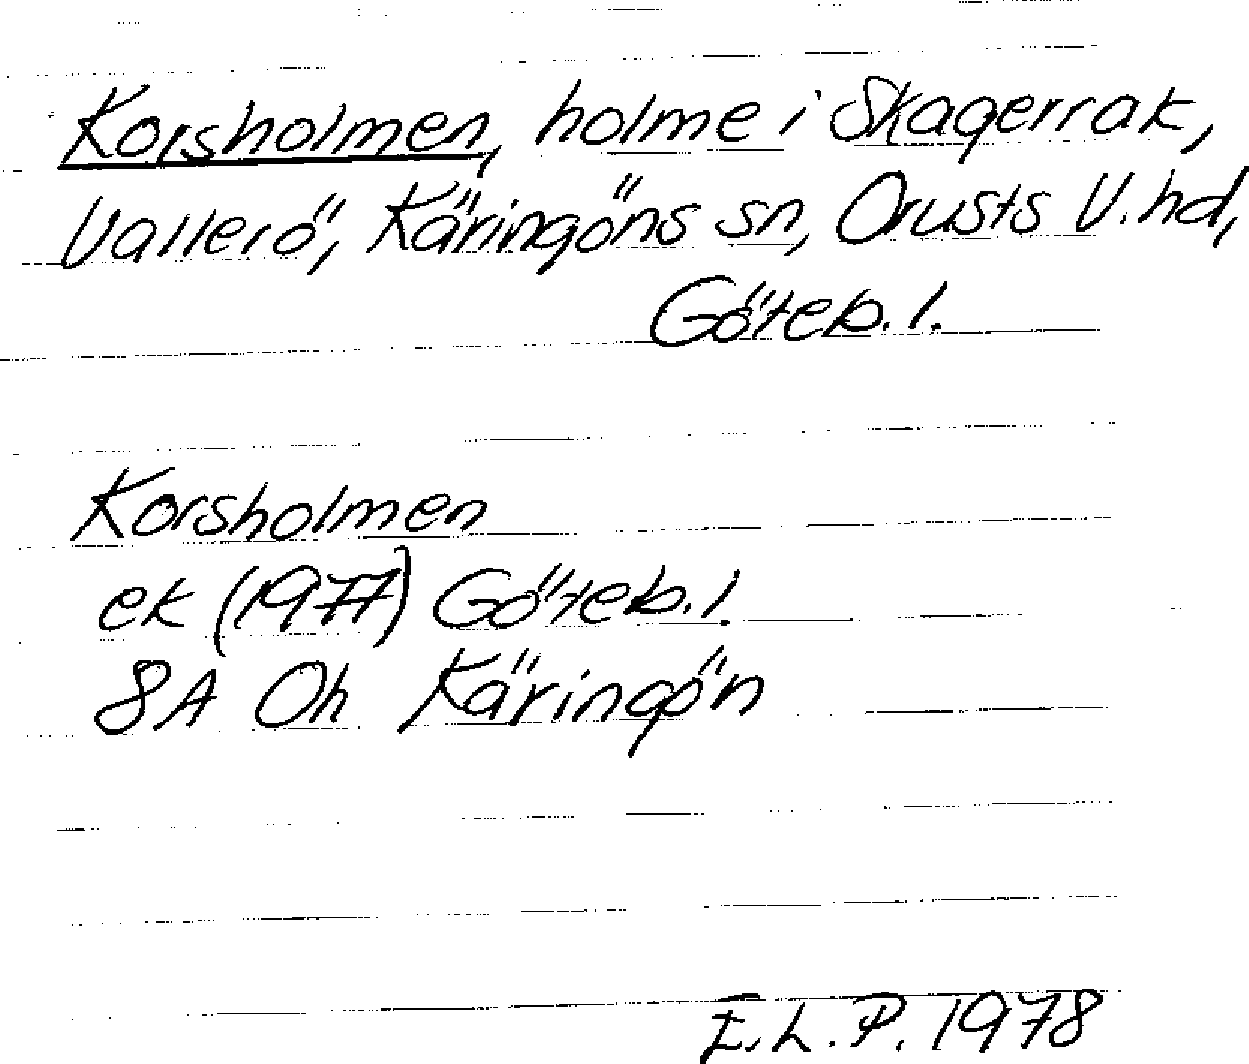 Korsholmen, holme i Skagerrak,
Vallerö, Käringöns sn, Orusts V. hd,
Göteb. l.
Korsholmen
ek (1977) Göteb. l.
8A Oh Käringön
E.L.P. 1978